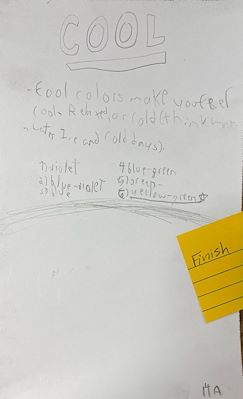 COOL
- Cool colors make you feel
cool. Relaxed, or cold (think
water Ice and cold days).
1) violet 4 blue-green
2) blue-violet 5) green
3) blue 6) yellow-green
Finish
MA